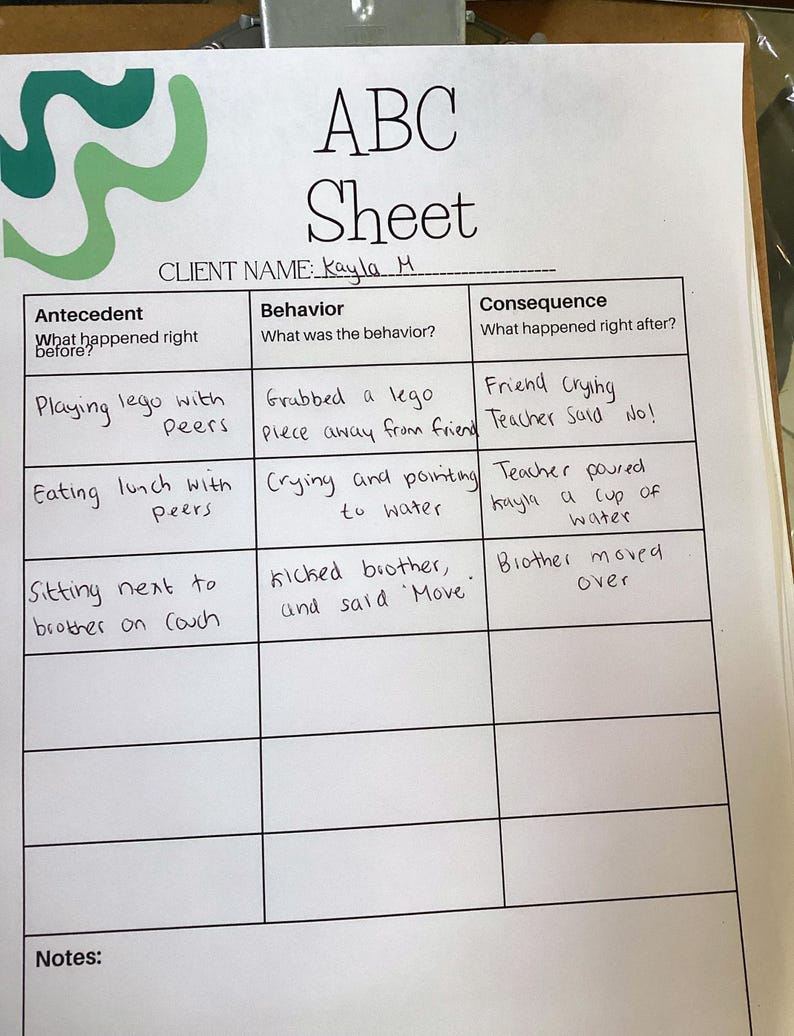 ABC
Sheet
CLIENT NAME: Kayla M
Antecedent
What happened right
before?
Behavior
What was the behavior?
Consequence
What happened right after?
Playing lego with
peers
Grabbed a lego
piece away from friend
Friend Crying
Teacher Said No!
Eating lunch with
peers
Crying and pointing
to water
Teacher poured
Kayla a cup of
water
Sitting next to
brother on Couch
Kicked brother,
and said 'Move'.
Brother moved
over
Notes: